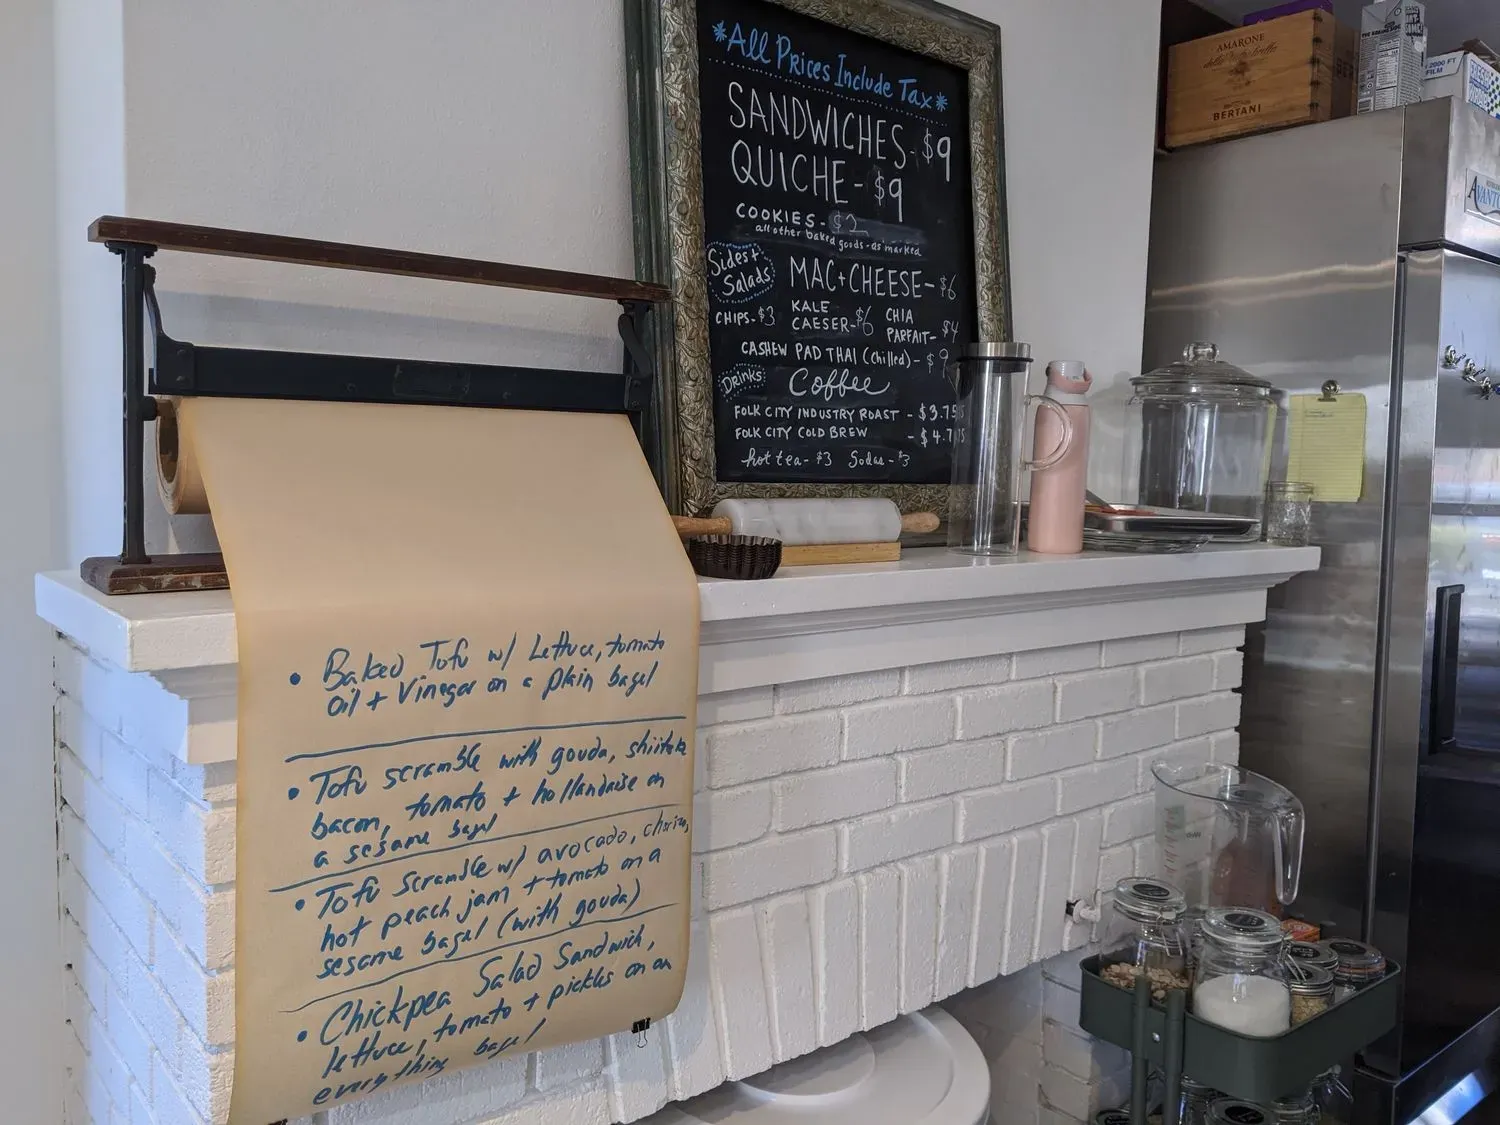 *All Prices Include Tax*
SANDWICHES - $9
QUICHE - $9
COOKIES - $2
all other baked goods - as marked
Sides +
Salads
MAC + CHEESE - $6
CHIPS - $3
KALE
CAESER - $6
CHIA
PARFAIT - $4
CASHEW PAD THAI (chilled) - $9
Drinks
Coffee
FOLK CITY INDUSTRY ROAST - $3.75
FOLK CITY COLD BREW - $4.75
hot tea - $3 Sodas - $3
• Baked Tofu w/ Lettuce, tomato
Oil + Vinegar on a plain bagel
• Tofu scramble with gouda, shiitake
bacon, tomato + hollandaise on
a sesame bagel
• Tofu scramble w/ avocado, chorizo,
hot peach jam + tomato on a
sesame bagel (with gouda)
• Chickpea Salad Sandwich,
lettuce, tomato + pickles on an
everything bagel
AMARONE
BERTANI
2000 FT
FILM